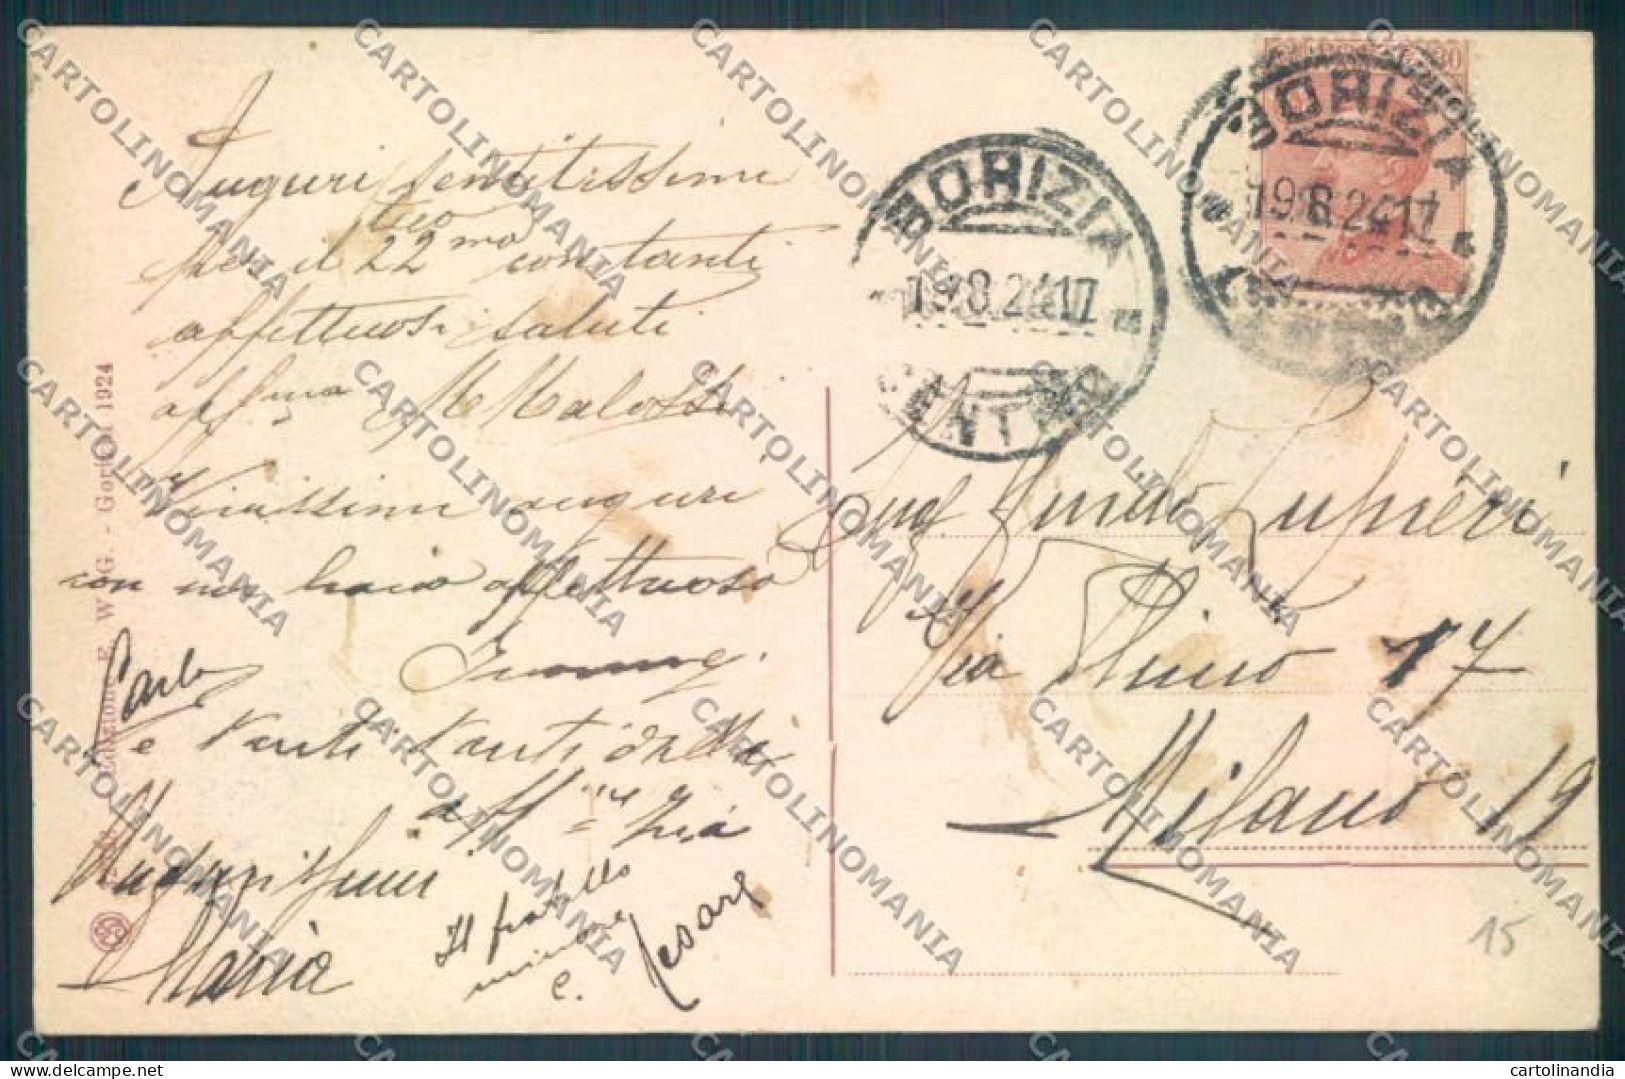 Auguri sentitissimi
teo
per il 22mo constanti
affettuosi saluti
aff.ma M Malossi
Vivissimi auguri
con un bacio affettuoso
Carlo
e tanti tanti
aff.
zia
Augurissimi
Maria
Il fratello
minore
C.
Cesare
Edizione E. W. G. - Gorizia 1924
GORIZIA
19.8.24.17
CENTRO
GORIZIA
19.8.24.17
30
Guido Lupieri
Via 17
Milano 19
15
CARTOLINOMANIA
cartolinandia